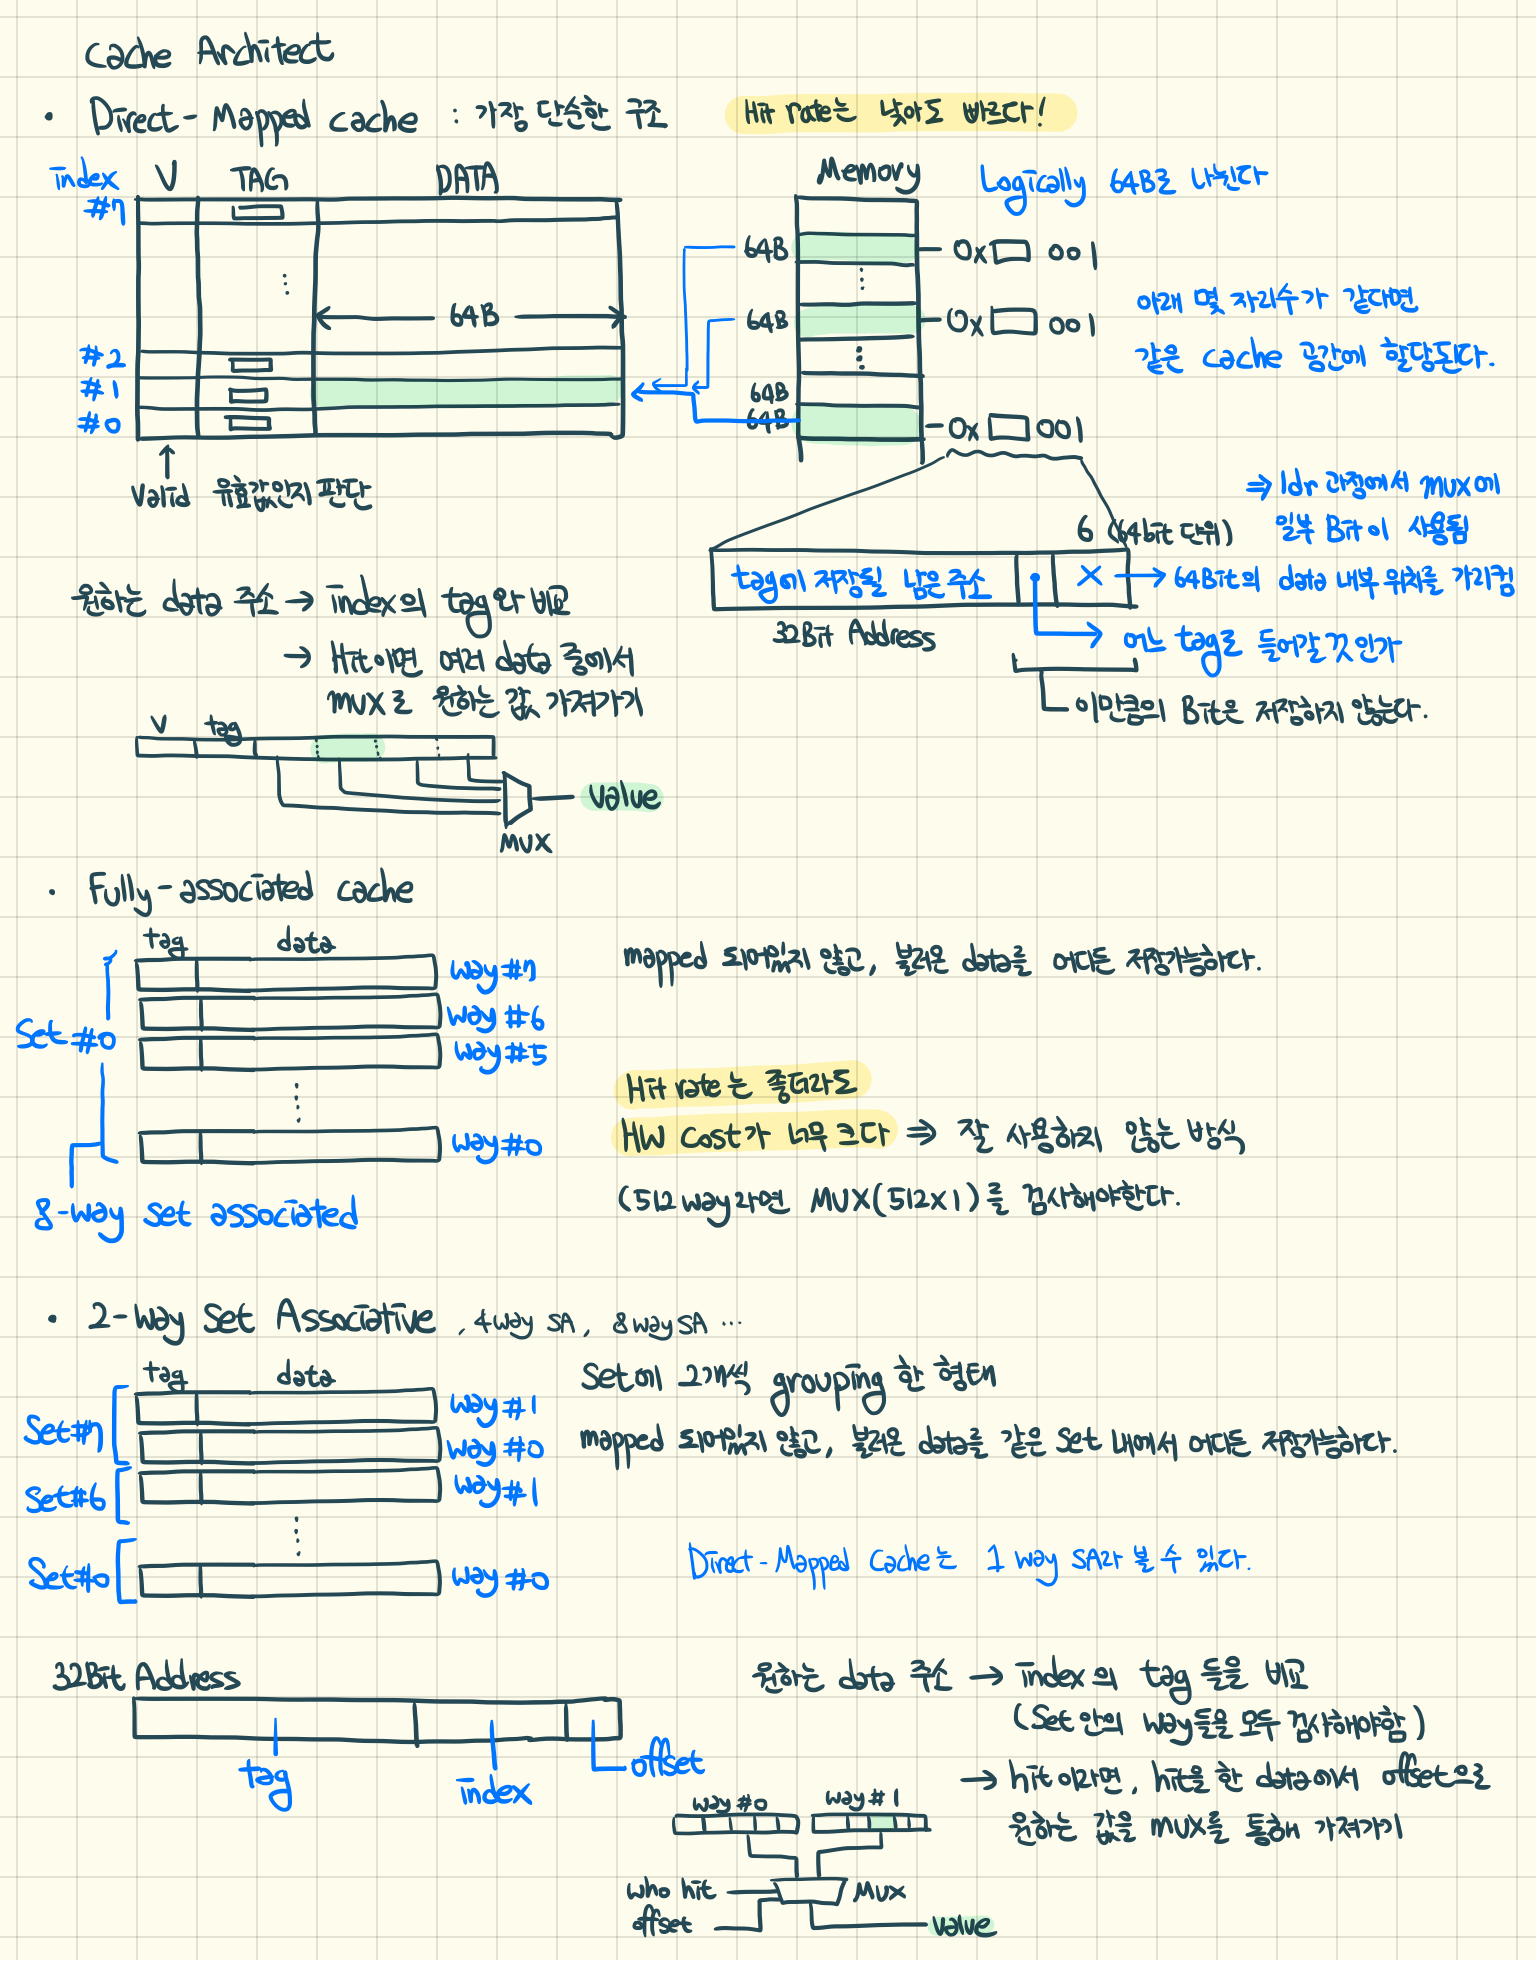 Cache Architect
· Direct-Mapped cache : 가장 단순한 구조 Hit rate는 낮아도 빠르다!
index V TAG DATA
#7
64B
#2
#1
#0
Valid 유효값인지 판단
Memory Logically 64B로 나뉜다
64B 0x 001
64B 0x 001
64B
64B 0x 001
아래 몇 자리수가 같다면
같은 cache 공간에 할당된다.
⇒ ldr 과정에서 MUX에
일부 Bit이 사용됨
6 (64bit 단위)
tag에 저장될 남은 주소 X → 64Bit의 data 내부 위치를 가리킴
32Bit Address
어느 tag로 들어갈 것인가
이만큼의 Bit은 저장하지 않는다.
원하는 data 주소 → index의 tag와 비교
→ Hit이면 여러 data 중에서
MUX로 원하는 값 가져가기
V tag
Value
MUX
· Fully-associated cache
tag data
way#7
way#6
Set #0
way#5
way#0
8-way set associated
mapped 되어있지 않고, 불러온 data를 어디든 저장가능하다.
Hit rate는 좋더라도
HW Cost가 너무 크다 ⇒ 잘 사용하지 않는 방식
(512way라면 MUX(512x1)를 검사해야한다.
· 2-way Set Associative , 4way SA, 8way SA ...
tag data
Set#7 way#1
way#0
Set#6 way#1
Set#0 way#0
Set에 2개씩 grouping 한 형태
mapped 되어있지 않고, 불러온 data를 같은 Set 내에서 어디든 저장가능하다.
Direct-Mapped Cache는 1 way SA라 볼 수 있다.
32Bit Address
tag index offset
원하는 data 주소 → index의 tag 들을 비교
(Set 안의 way들을 모두 검사해야함)
→ hit이라면, hit을 한 data에서 offset으로
원하는 값을 MUX를 통해 가져가기
way#0 way#1
who hit MUX
offset value